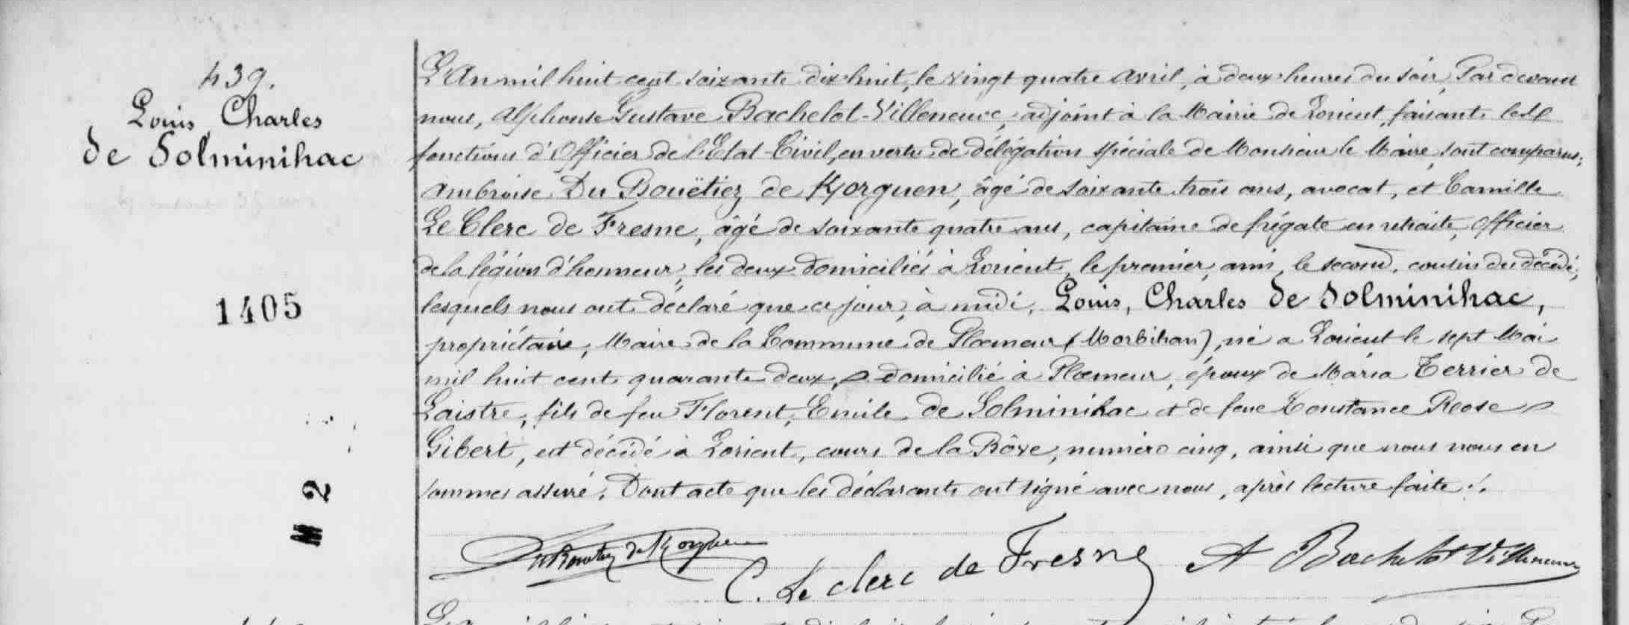 439.
Louis Charles
de Solminihac
1405
M 2
L'An mil huit cent soixante dix-huit, le vingt quatre avril, à deux heures du soir, Par devant
nous, Alphonse Gustave Bachelot-Villeneuve, adjoint à la Mairie de Lorient, faisant les
fonctions d'Officier de l'Etat-Civil, en vertu de délégation spéciale de Monsieur le Maire, sont comparus:
Ambroise Du Bouëtiez de Korguen, âgé de soixante trois ans, avocat, et Camille
Le Clerc de Fresne, âgé de soixante quatre ans, capitaine de frégate en retraite, officier
de la légion d'honneur, les deux domiciliés à Lorient, le premier, ami, le second, cousin du décédé,
lesquels nous ont déclaré que ce jour, à midi, Louis, Charles de Solminihac,
propriétaire, Maire de la Commune de Ploemeur (Morbihan), né a Lorient le sept Mai
mil huit cent quarante deux, domicilié à Ploemeur, époux de Maria Terrier de
Laistre, fils de feu Florent, Emile de Solminihac et de feue Constance Rose
Gibert, est décédé à Lorient, cours de la Bôve, numéro cinq, ainsi que nous nous en
sommes assuré. Dont acte que les déclarants ont signé avec nous, après lecture faite.
Du Bouetiez de Korguen C. Le Clerc de Fresne A Bachelot Villeneuve